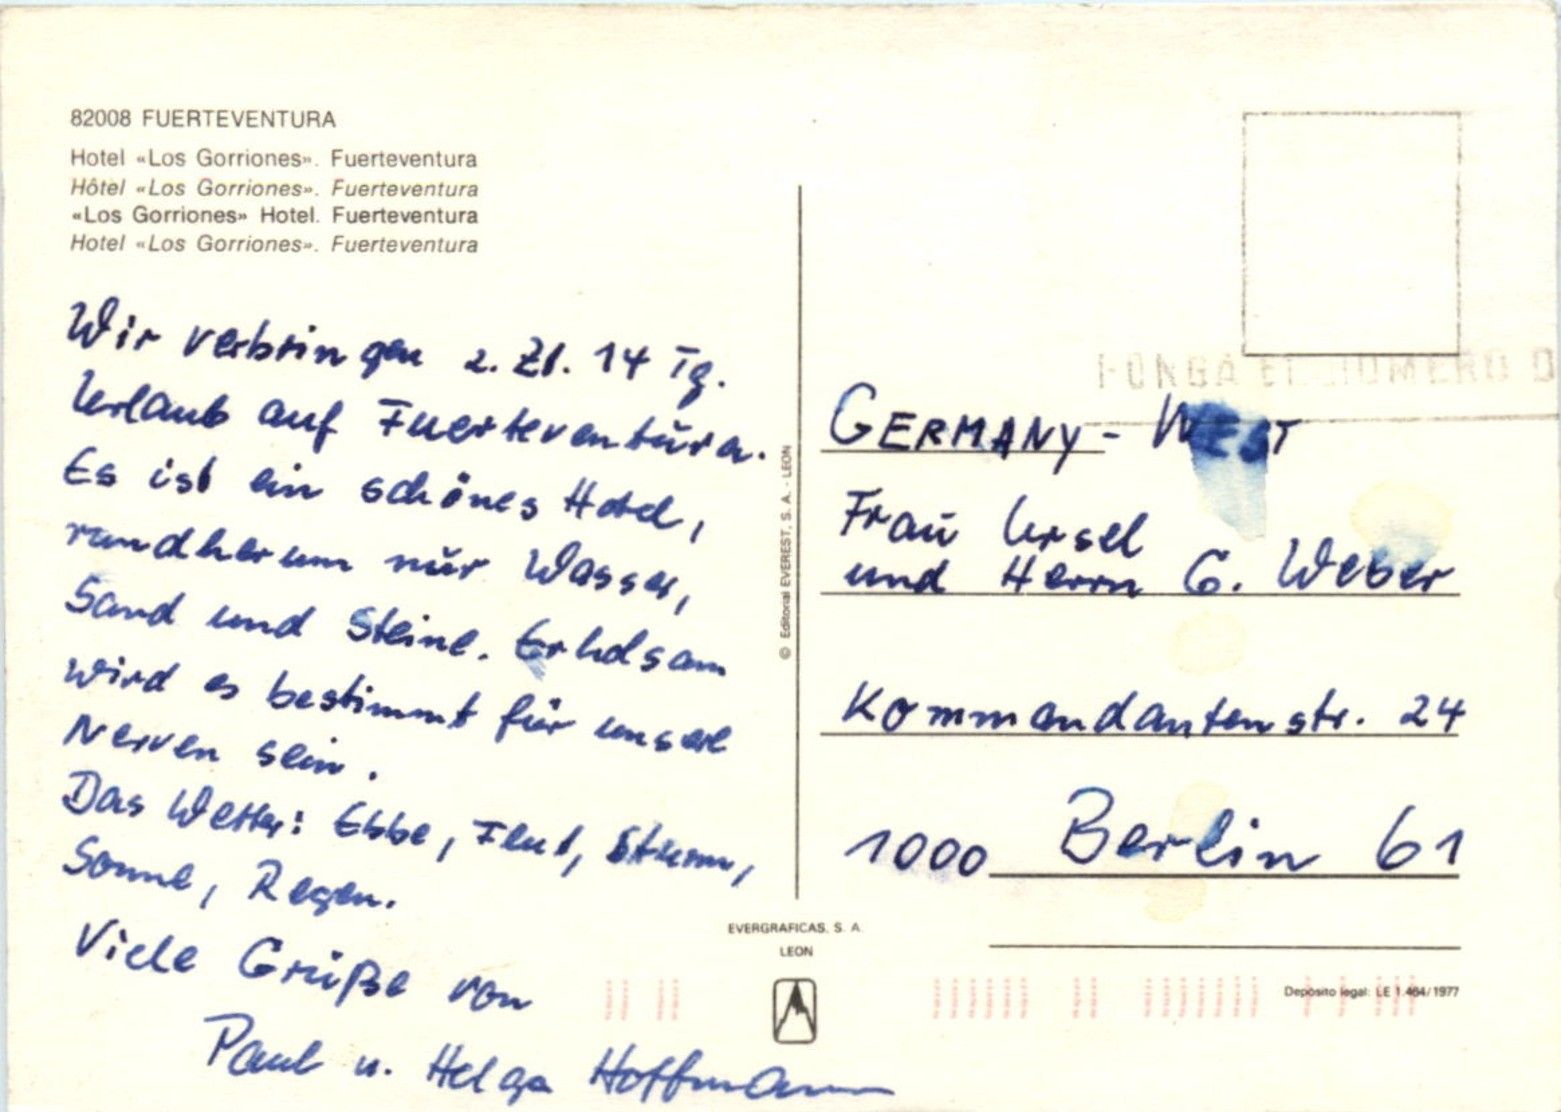 82008 FUERTEVENTURA
Hotel «Los Gorriones». Fuerteventura
Hôtel «Los Gorriones». Fuerteventura
«Los Gorriones» Hotel. Fuerteventura
Hotel «Los Gorriones». Fuerteventura
Wir verbringen z. Zt. 14 Tg.
Urlaub auf Fuerteventura.
Es ist ein schönes Hotel,
rundherum nur Wasser,
Sand und Steine. Erholsam
wird es bestimmt für unsere
Nerven sein.
Das Wetter: Ebbe, Flut, Sturm,
Sonne, Regen.
Viele Grüße von
Paul u. Helga Hoffmann
© Editorial EVEREST, S. A. - LEON
EVERGRAFICAS, S. A.
LEON
PONGA EL NUMERO D
GERMANY - WEST
Frau Ursel
und Herrn G. Weber
Kommandantenstr. 24
1000 Berlin 61
Depósito legal: LE 1.464/1977